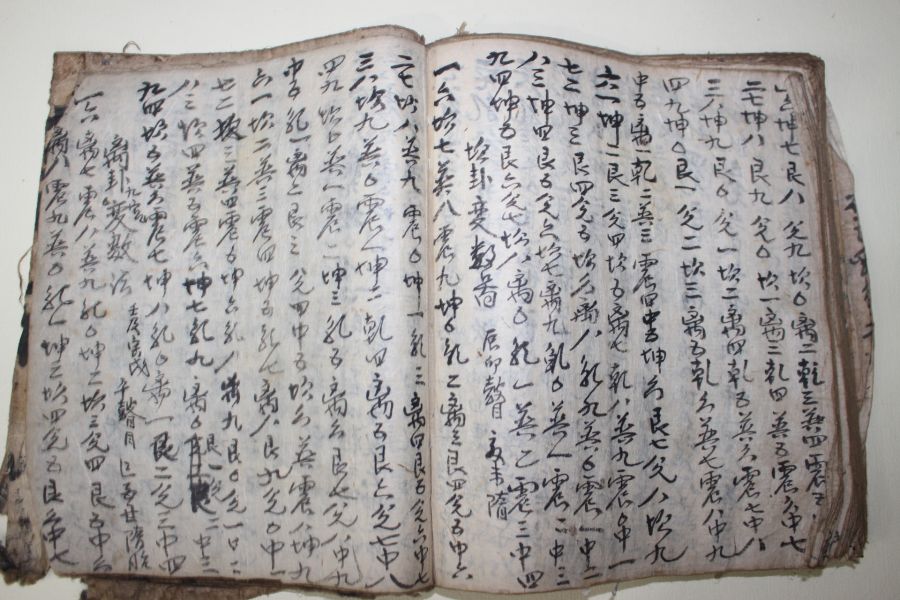 坤七艮八兌九坎〇离二乾三巽四震五
二七坤八艮九兌〇坎一离三乾四巽五震六中七
三八坤九艮〇兌一坎二离四乾五巽六震七中八
四九坤〇艮一兌二坎三离五乾六巽七震八中九
中五离一乾二巽三震四中五坤六艮七兌八坎九
六一坤二艮三兌四坎五离七乾八巽九震〇中一
七二坤三艮四兌五坎六离八乾九巽〇震一中二
八三坤四艮五兌六坎七离九乾〇巽一震二中三
九四坤五艮六兌七坎八离〇乾一巽二震三中四
坎卦變數 辰卯
一六坎七巽八震九坤〇乾二离三艮四兌五中六
二七坎八巽九震〇坤一乾三离四艮五兌六中七
三八坎九巽〇震一坤二乾四离五艮六兌七中八
四九坎〇巽一震二坤三乾五离六艮七兌八中九
中五乾一离二艮三兌四中五坎六巽七震八坤九
六一坎二巽三震四坤五乾七离八艮九兌〇中一
七二坎三巽四震五坤六乾八离九艮〇兌一中二
八三坎四巽五震六坤七乾九离〇艮一兌二中三
九四坎五巽六震七坤八乾〇离一艮二兌三中四
离卦九宮變數法 寅戌
一六离七震八巽九乾〇坤二坎三兌四艮五中六
离八震九巽〇乾一坤三坎四兌五艮六中七